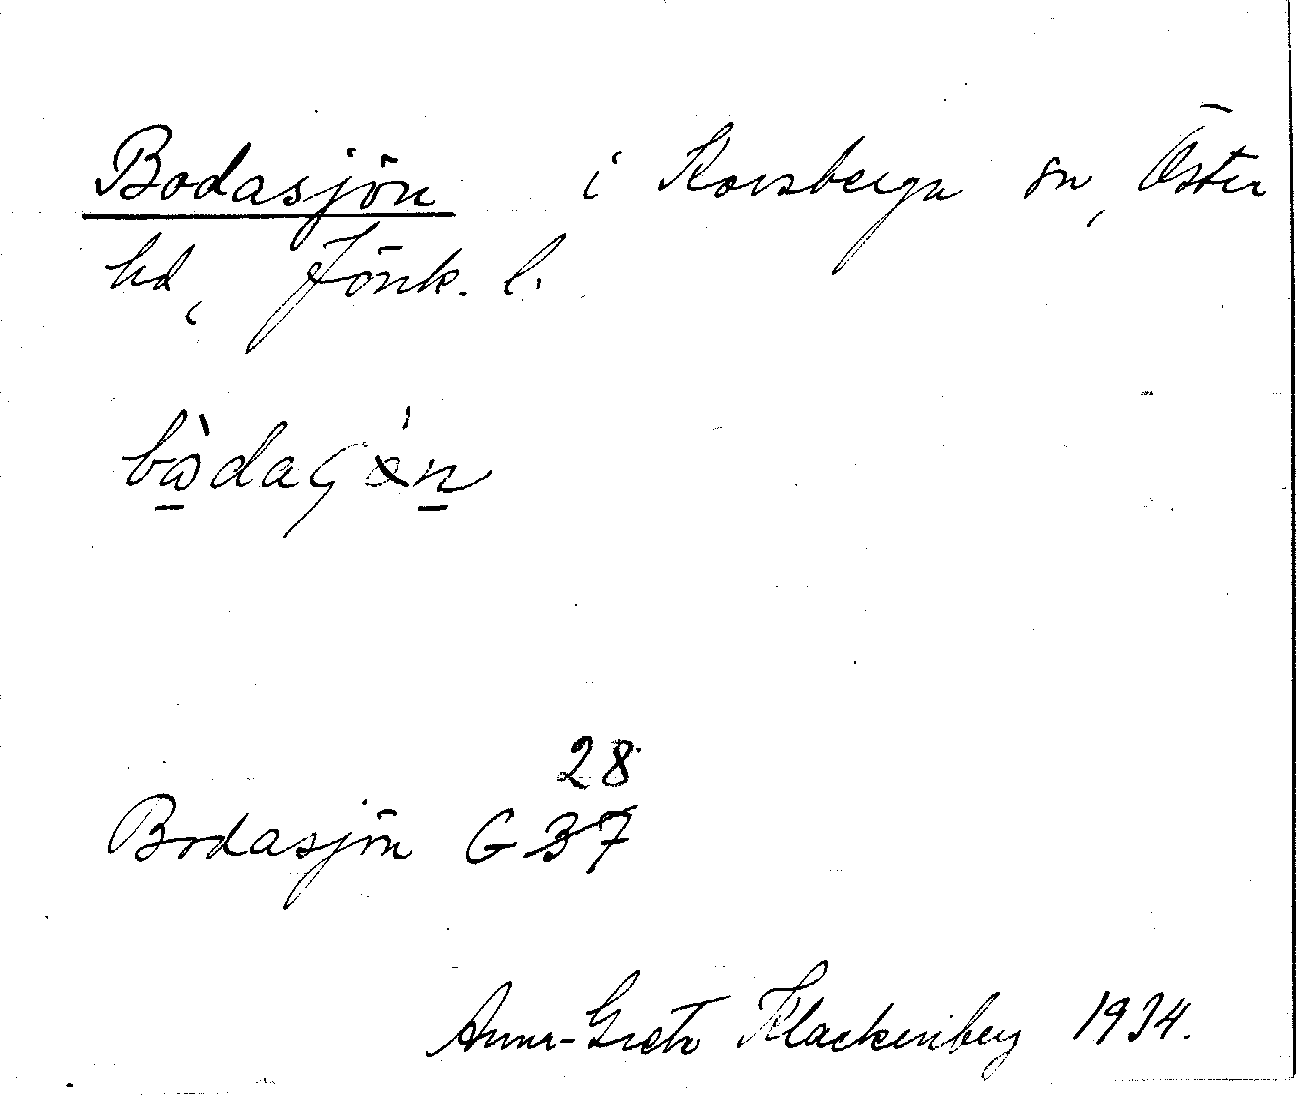 Bodasjön i Korsberga sn, Öster
hd, Jönk. l.
28
Bodasjön G 37
Anna-Greta Klackenberg 1934.